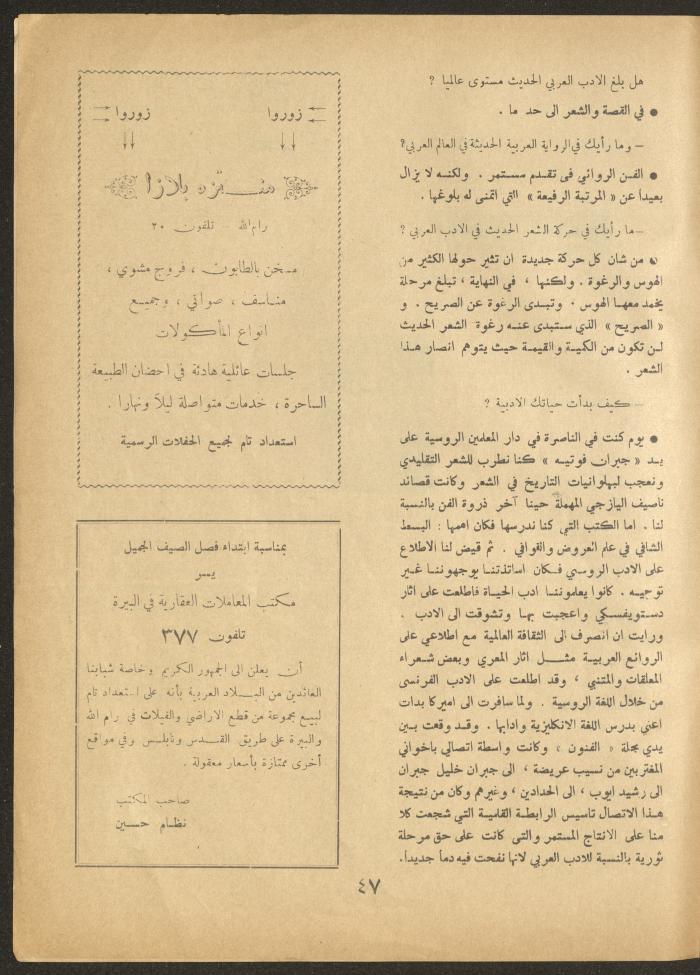 هل بلغ الادب العربي الحديث مستوى عالميا ؟
● في القصة والشعر الى حد ما .
— وما رأيك في الرواية العربية الحديثة في العالم العربي؟
● الفن الروائي في تقدم مستمر . ولكنه لا يزال
بعيدا عن « المرتبة الرفيعة » التي اتمنى له بلوغها .
— ما رأيك في حركة الشعر الحديث في الادب العربي ؟
● من شان كل حركة جديدة ان تثير حولها الكثير من
الهوس والرغوة . ولكنها ، في النهاية ، تبلغ مرحلة
يخمد معها الهوس . وتبدى الرغوة عن الصريح . و
« الصريح » الذي ستبدى عنه رغوة الشعر الحديث
لن تكون من الكمية والقيمة حيث يتوهم انصار هذا
الشعر .
— كيف بدأت حياتك الادبية ؟
● يوم كنت في الناصرة في دار المعلمين الروسية على
يد « جبران فوتيه » كنا نطرب للشعر التقليدي
ونعجب لبهلوانيات التاريخ في الشعر وكانت قصائد
ناصيف اليازجي المهملة حينا آخر ذروة الفن بالنسبة
لنا . اما الكتب التي كنا ندرسها فكان اهمها : البسط
الشافي في علم العروض والقوافي . ثم قيض لنا الاطلاع
على الادب الروسي فكان اساتذتنا يوجهوننا غير
توجيه . كانوا يعلموننا ادب الحياة فاطلعت على اثار
دستويفسكي واعجبت بها وتشوقت الى الادب .
ورايت ان انصرف الى الثقافة العالمية مع اطلاعي على
الروائع العربية مثل اثار المعري وبعض شعراء
المعلقات والمتنبي ، وقد اطلعت على الادب الفرنسى
من خلال اللغة الروسية . ولما سافرت الى اميركا بدات
اعني بدرس اللغة الانكليزية وادابها . وقد وقعت بين
يدي مجلة « الفنون » وكانت واسطة اتصالي باخواني
المغتربين من نسيب عريضة ، الى جبران خليل جبران
الى رشيد ايوب ، الى الحدادين ، وغيرهم وكان من نتيجة
هذا الاتصال تاسيس الرابطة القلمية التي شجعت كلا
منا على الانتاج المستمر والتى كانت على حق مرحلة
ثورية بالنسبة للادب العربي لانها نفحت فيه دماً جديدا.
زوروا زوروا
منتزه بلازا
رام الله — تلفون ٢٠
مسخن بالطابون ، فروج مشوي ،
مناسف ، صواني ، وجميع
انواع المأكولات
جلسات عائلية هادئة في احضان الطبيعة
الساحرة ، خدمات متواصلة ليلاً ونهارا .
استعداد تام لجميع الحفلات الرسمية
بمناسبة ابتداء فصل الصيف الجميل
يسر
مكتب المعاملات العقارية في البيرة
تلفون ٣٧٧
أن يعلن الى الجمهور الكريم وخاصة شبابنا
العائدين من البلاد العربية بأنه على استعداد تام
لبيع مجموعة من قطع الاراضي والفيلات في رام الله
والبيرة على طريق القدس ونابلس وفي مواقع
أخرى ممتازة بأسعار معقولة .
صاحب المكتب
نظام حسين
٤٧